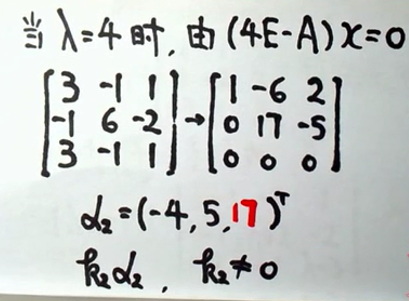 当 λ=4 时, 由 (4E-A)x=0
[3 -1 1; -1 6 -2; 3 -1 1] → [1 -6 2; 0 17 -5; 0 0 0]
α₂=(-4,5,17)ᵀ
k₂α₂, k₂≠0